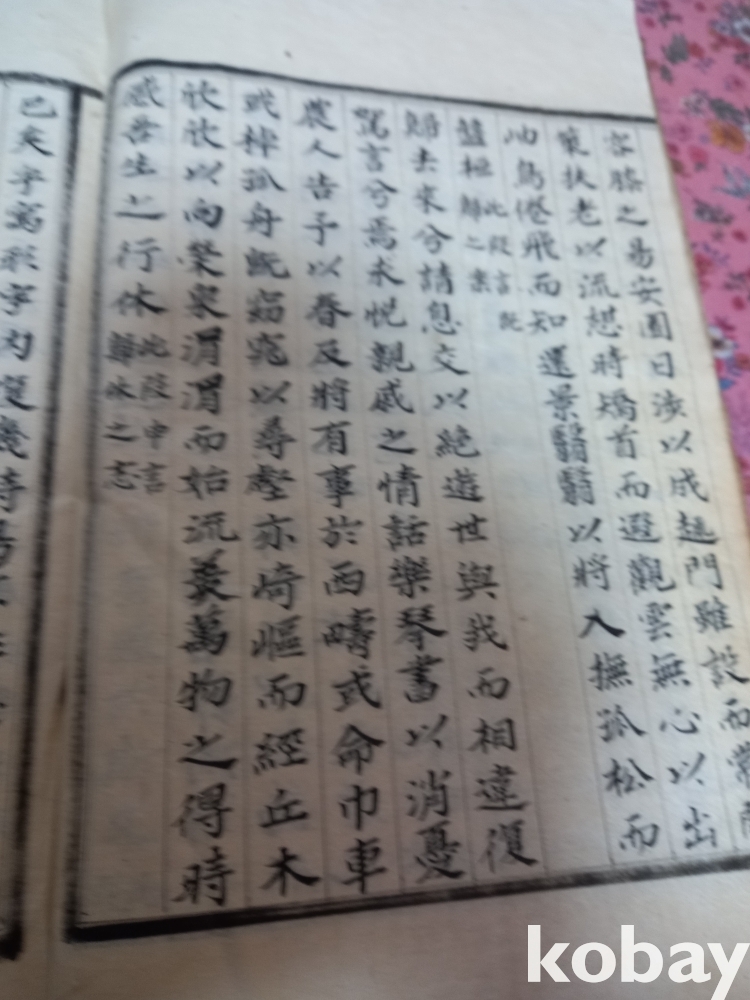 容膝之易安園日涉以成趣門雖設而常關
策扶老以流憩時矯首而遐觀雲無心以出
岫鳥倦飛而知還景翳翳以將入撫孤松而
盤桓 此段言既歸之樂
歸去來兮請息交以絶遊世與我而相違復
駕言兮焉求悅親戚之情話樂琴書以消憂
農人告予以春及將有事於西疇或命巾車
或棹孤舟既窈窕以尋壑亦崎嶇而經丘木
欣欣以向榮泉涓涓而始流羨萬物之得時
感吾生之行休 此段申言歸休之志
已矣乎寓形宇內復幾時曷不
kobay